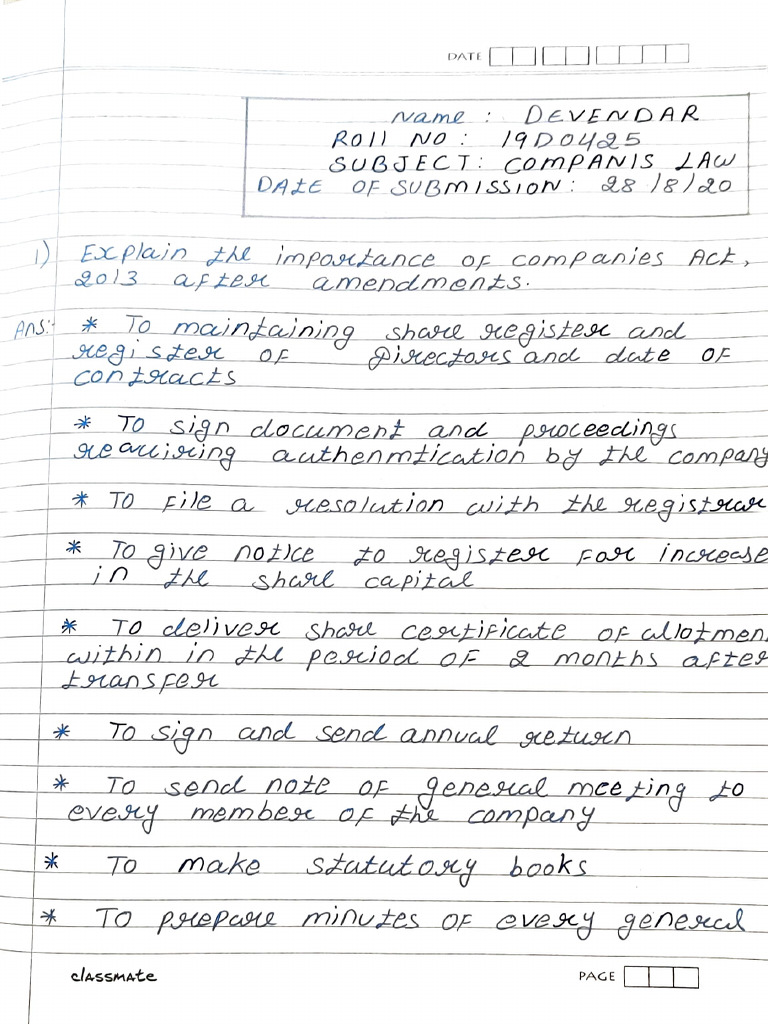 DATE
Name : DEVENDAR
ROll NO : 19D0425
SUBJECT: COMPANIS LAW
DATE OF SUBMISSION: 28/8/20
1) Explain the importance of companies Act,
2013 after amendments.
Ans:- * To maintaining share register and
register of Directors and date of
contracts
* To sign document and proceedings
reauiring authenmtication by the company
* To File a resolution with the registrar
* To give notice to register for increase
in the share capital
* To deliver share certificate of allotmen
within in the period of 2 months after
transfer
* To sign and send annual return
* To send note of general meeting to
every member of the company
* To make statutory books
* To prepare minutes of every general
classmate
PAGE